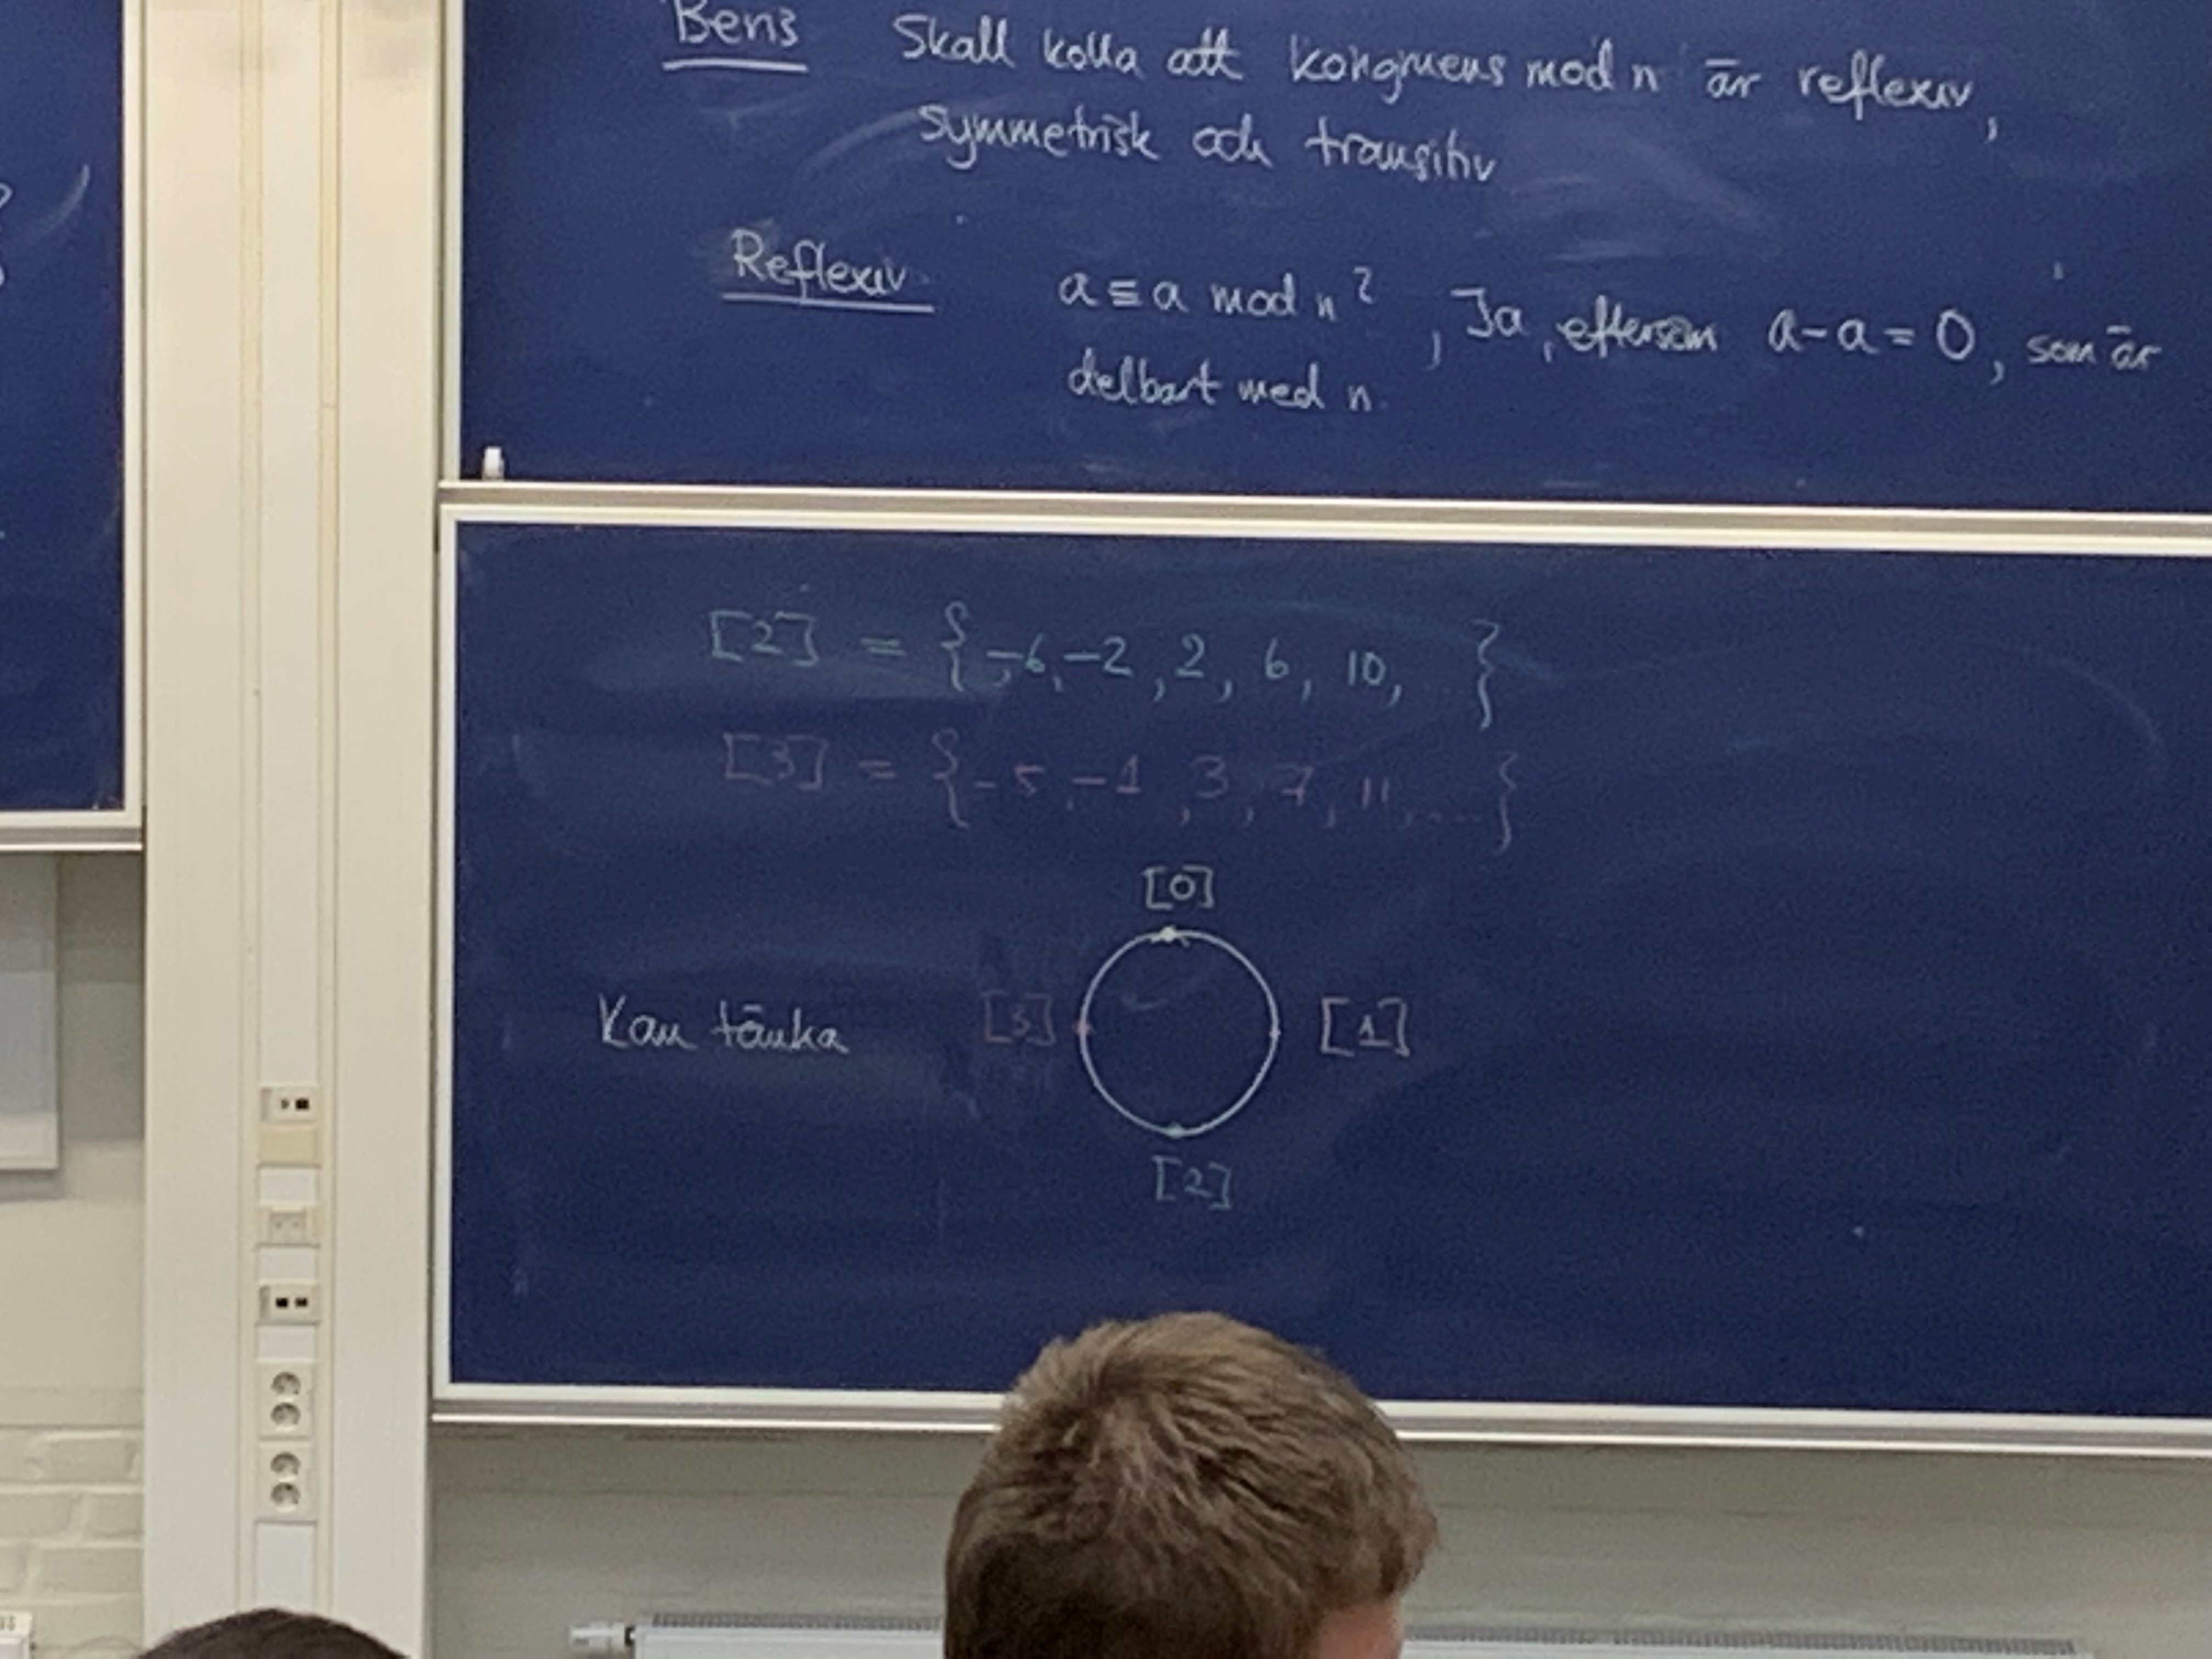 Bevis Skall kolla att kongruens mod n är reflexiv,
symmetrisk och transitiv
Reflexiv a ≡ a mod n ? , Ja, eftersom a-a = 0, som är
delbart med n.
[2] = { -6, -2, 2, 6, 10, ... }
[3] = { -5, -1, 3, 7, 11, ... }
[0]
Kan tänka [3] [1]
[2]